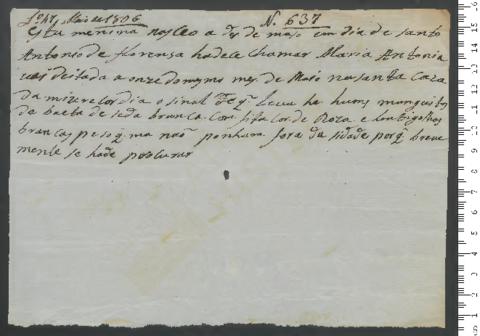 Lº 47 Maio de 1806 N. 637
Esta menina nasceo a dês de maio em dia de santo
Antonio de florensa hadece chamar Maria Antonia
vai deitada a onze do mesmo mes de Maio na santa Caza
da mizerecordia o sinal que Leva he huns manguitos
de baeta de seda branca Com fita Cor de Roza e
brancas peso q. ma não ponham fora da sidade porq. breve
mente se hade porcurar